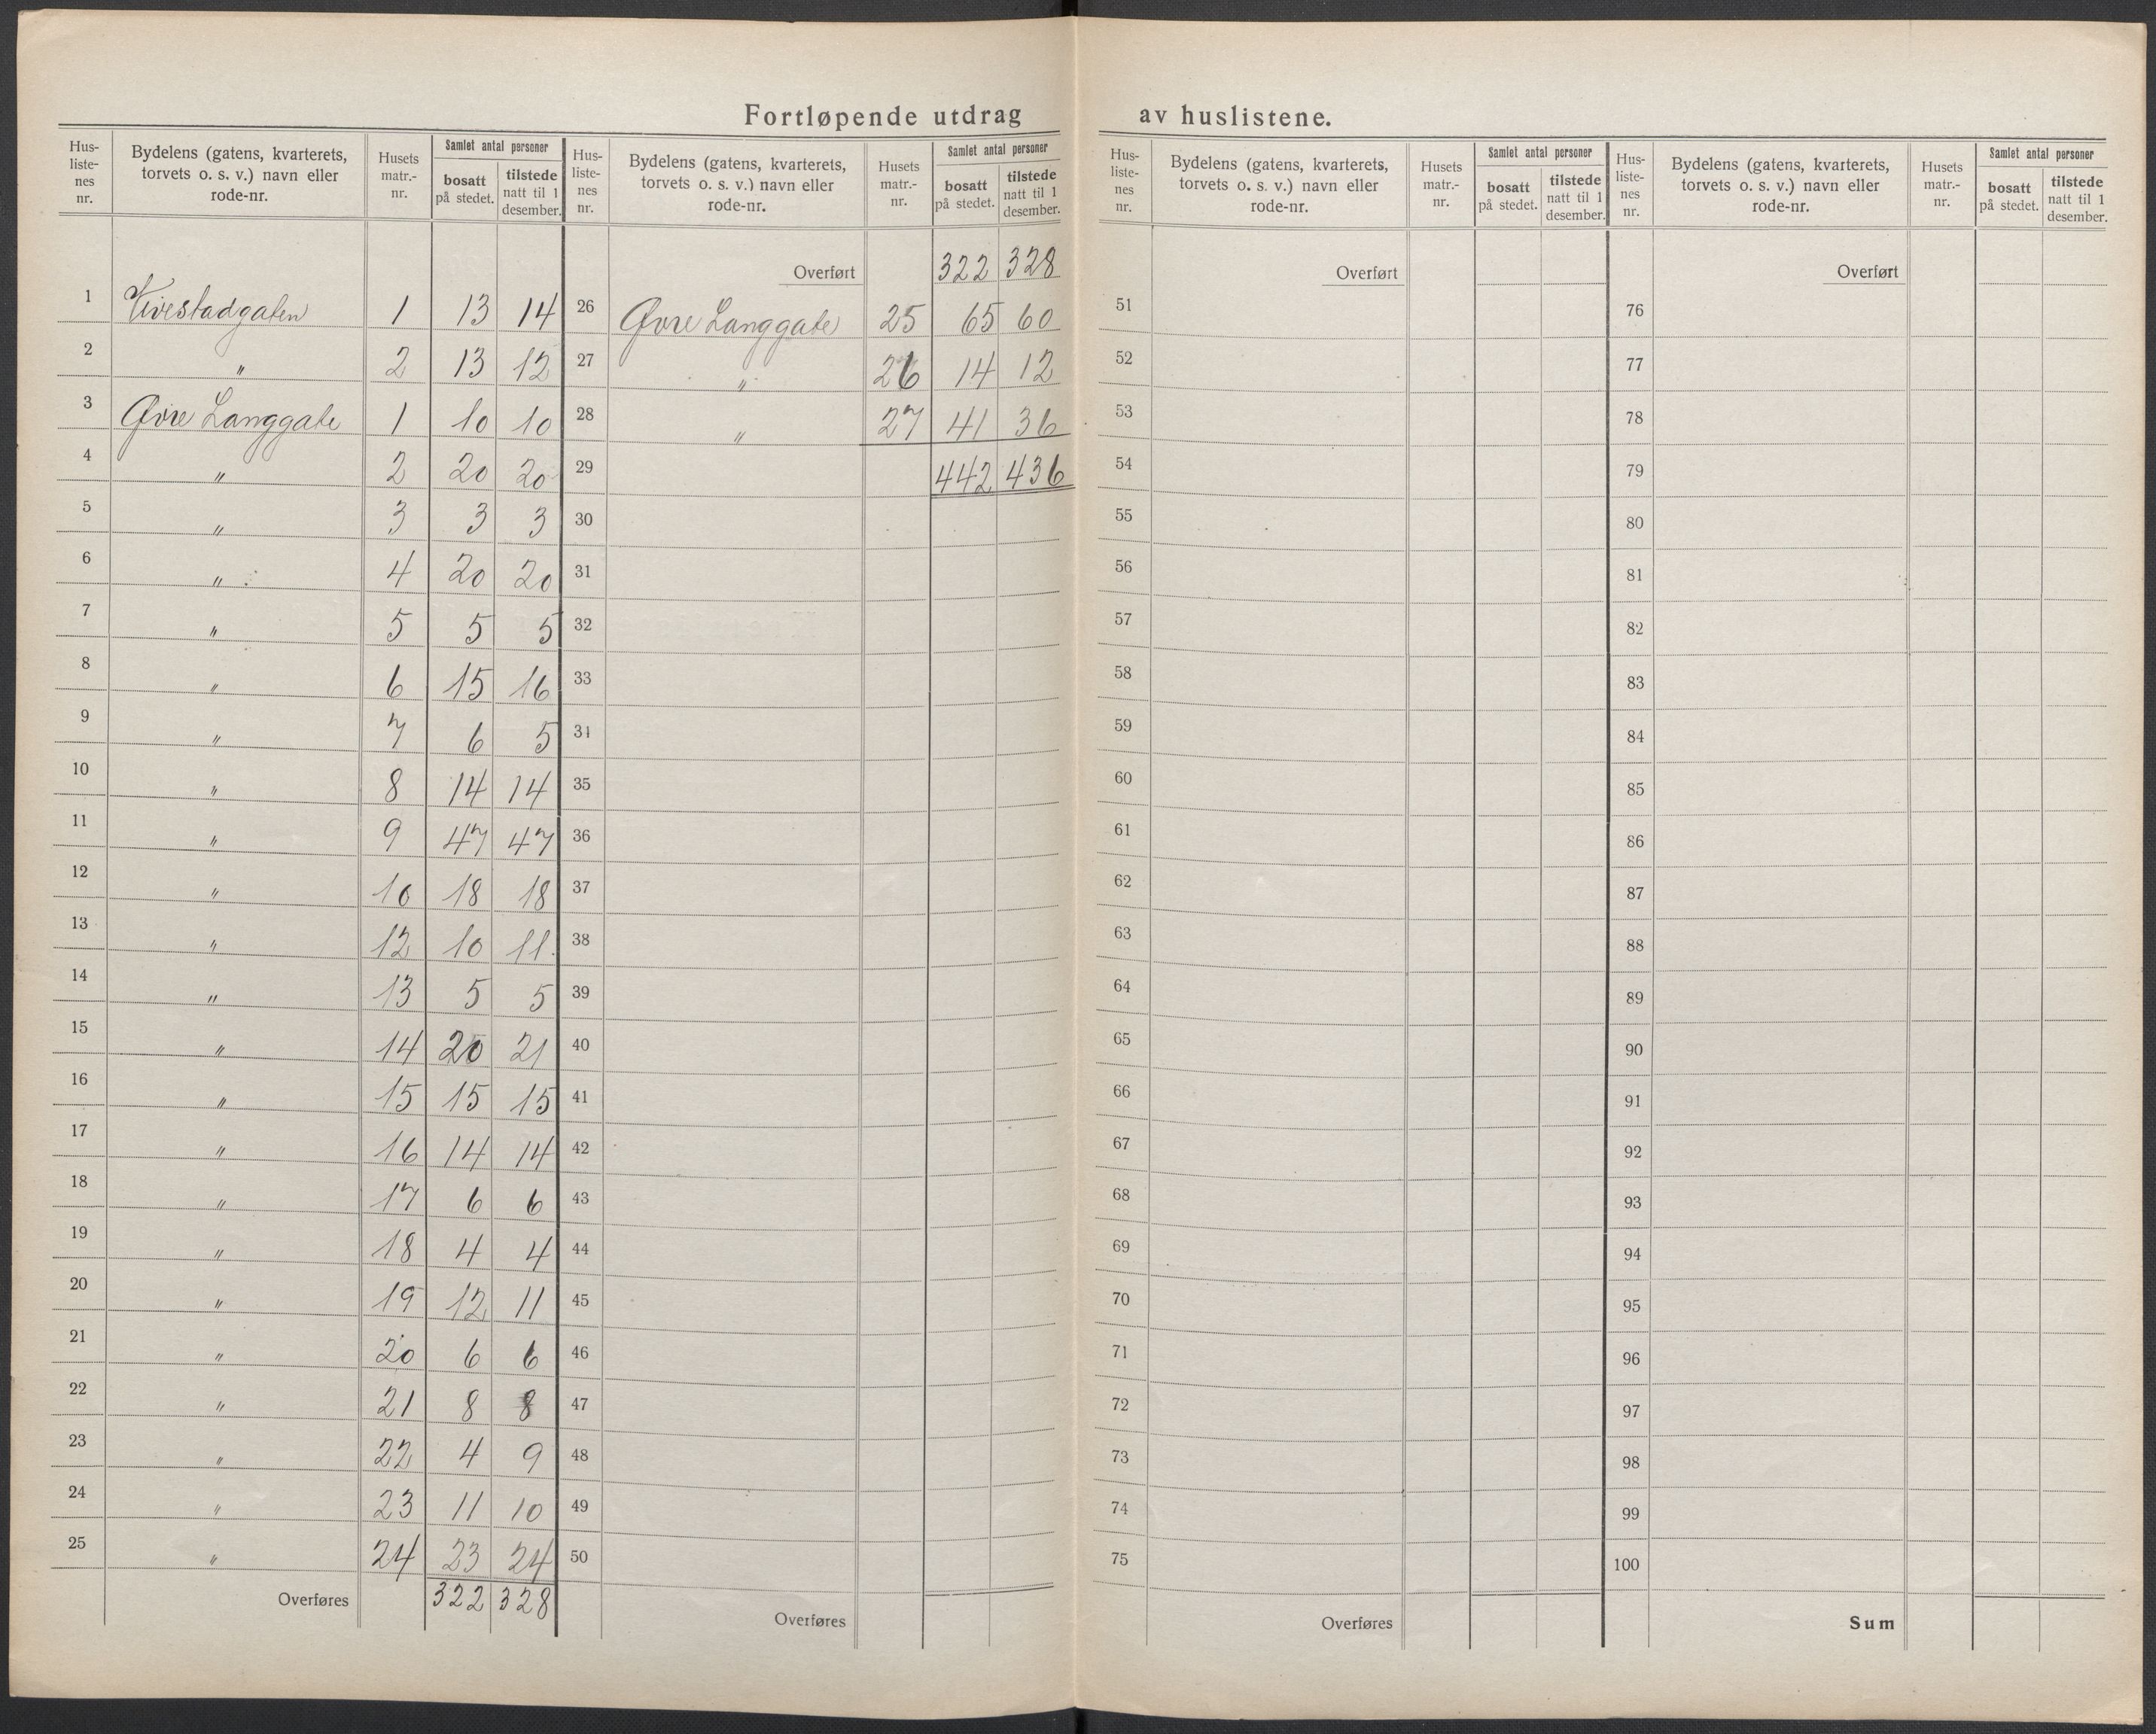 Fortløpende utdrag av huslistene.
Hus-listenes nr. | Bydelens (gatens, kvarterets, torvets o. s. v.) navn eller rode-nr. | Husets matr.-nr. | Samlet antal personer | bosatt på stedet. | tilstede natt til 1 desember.
1 Vivestadgaten 1 13 14
2 " 2 13 12
3 Øvre Langgate 1 10 10
4 " 2 20 20
5 " 3 3 3
6 " 4 20 20
7 " 5 5 5
8 " 6 15 16
9 " 7 6 5
10 " 8 14 14
11 " 9 47 47
12 " 10 18 18
13 " 12 10 11
14 " 13 5 5
15 " 14 20 21
16 " 15 15 15
17 " 16 14 14
18 " 17 6 6
19 " 18 4 4
20 " 19 12 11
21 " 20 6 6
22 " 21 8 8
23 " 22 4 9
24 " 23 11 10
25 " 24 23 24
Overføres 322 328
Hus-liste-nes nr. | Bydelens (gatens, kvarterets, torvets o. s. v.) navn eller rode-nr. | Husets matr.-nr. | Samlet antal personer | bosatt på stedet. | tilstede natt til 1 desember.
Overført 322 328
26 Øvre Langgate 25 65 60
27 " 26 14 12
28 " 27 41 36
29 442 436
30
31
32
33
34
35
36
37
38
39
40
41
42
43
44
45
46
47
48
49
50
Overføres
Hus-liste-nes nr. | Bydelens (gatens, kvarterets, torvets o. s. v.) navn eller rode-nr. | Husets matr.-nr. | Samlet antal personer | bosatt på stedet. | tilstede natt til 1 desember.
Overført
51
52
53
54
55
56
57
58
59
60
61
62
63
64
65
66
67
68
69
70
71
72
73
74
75
Overføres
Hus-liste-nes nr. | Bydelens (gatens, kvarterets, torvets o. s. v.) navn eller rode-nr. | Husets matr.-nr. | Samlet antal personer | bosatt på stedet. | tilstede natt til 1 desember.
Overført
76
77
78
79
80
81
82
83
84
85
86
87
88
89
90
91
92
93
94
95
96
97
98
99
100
Sum